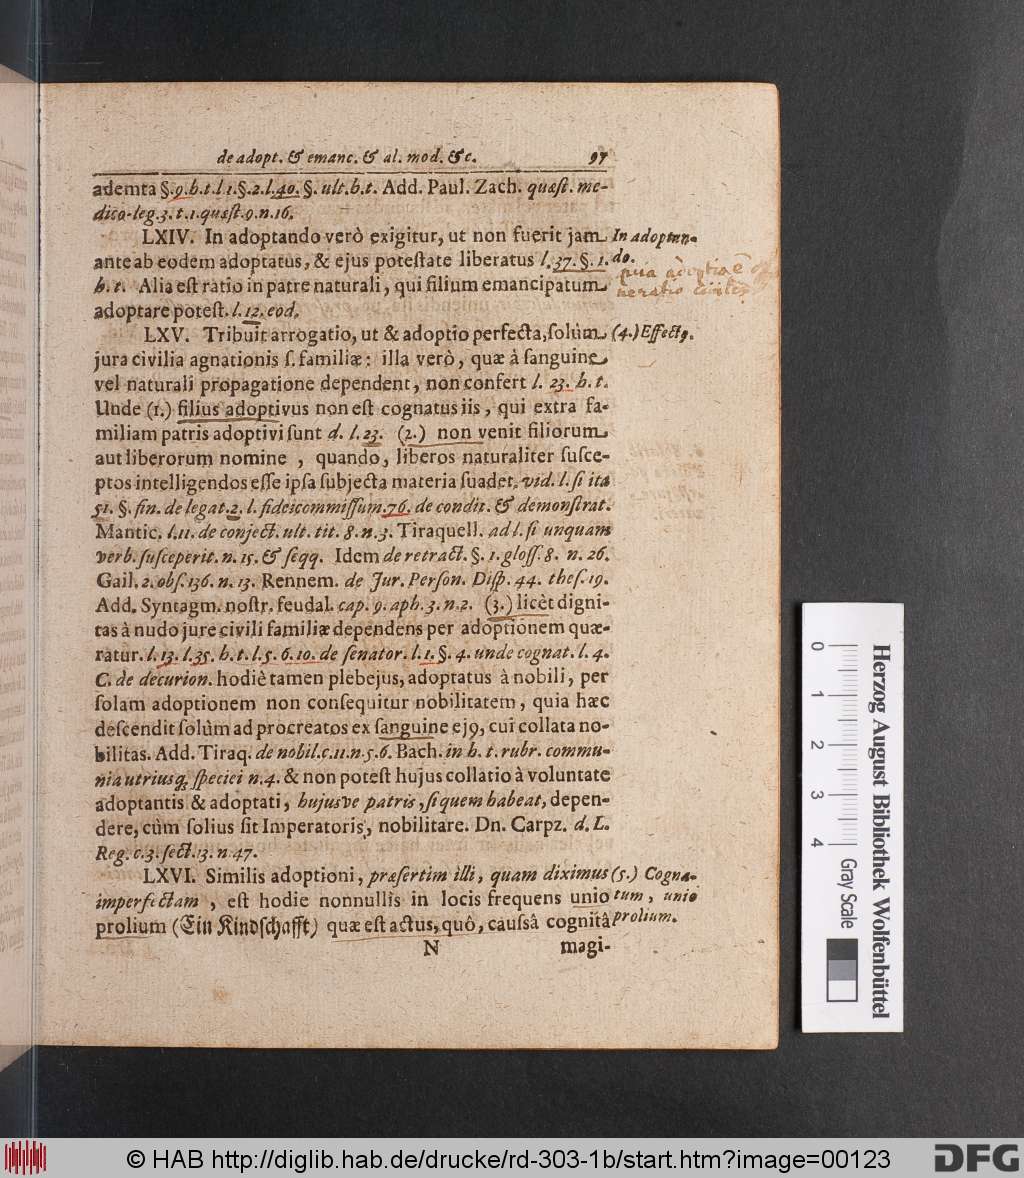 de adopt. & emanc. & al. mod. &c. 97
ademta §.9.h.t.l 1.§.2.l.40. §. ult.h.t. Add. Paul. Zach. quæſt. me-
dico-leg.3.t.1.quæſt.9.n.16.
LXIV. In adoptando verò exigitur, ut non fuerit jam
In adoptan-
ante ab eodem adoptatus, & ejus poteſtate liberatus l.37. §. 1.
do.
h. t. Alia eſt ratio in patre naturali, qui filium emancipatum
adoptare poteſt. l. 12. eod.
LXV. Tribuit arrogatio, ut & adoptio perfecta, ſolùm
(4.) Effectꝰ.
jura civilia agnationis ſ. familiæ: illa verò, quæ à ſanguine
vel naturali propagatione dependent, non confert l. 23. h. t.
Unde (1.) filius adoptivus non eſt cognatus iis, qui extra fa-
miliam patris adoptivi ſunt d. l. 23. (2.) non venit filiorum
aut liberorum nomine , quando, liberos naturaliter ſuſce-
ptos intelligendos eſſe ipſa ſubjecta materia ſuadet, vid. l. ſi ita
51. §. fin. de legat. 2. l. fideicommiſſum. 76. de condit. & demonſtrat.
Mantic. l.11. de conject. ult. tit. 8. n.3. Tiraquell. ad l. ſi unquam
verb. ſuſceperit. n. 15. & ſeqq. Idem de retract. §. 1. gloſſ. 8. n. 26.
Gail. 2. obſ. 136. n. 13. Rennem. de Jur. Perſon. Diſp. 44. theſ. 19.
Add. Syntagm. noſtr. feudal. cap. 9. aph. 3. n. 2. (3.) licèt digni-
tas à nudo jure civili familiæ dependens per adoptionem quæ-
ratur. l. 13. l. 35. h. t. l. 5. 6. 10. de ſenator. l. 1. §. 4. unde cognat. l. 4.
C. de decurion. hodiè tamen plebejus, adoptatus à nobili, per
ſolam adoptionem non conſequitur nobilitatem, quia hæc
deſcendit ſolùm ad procreatos ex ſanguine ejꝰ, cui collata no-
bilitas. Add. Tiraq. de nobil.c.11.n.5.6. Bach. in h. t. rubr. commu-
nia utriusq; ſpeciei n.4. & non poteſt hujus collatio à voluntate
adoptantis & adoptati, hujusve patris, ſi quem habeat, depen-
dere, cùm ſolius ſit Imperatoris, nobilitare. Dn. Carpz. d. L.
Reg. c. 3. ſect. 13. n 47.
LXVI. Similis adoptioni, præſertim illi, quam diximus
(5.) Cogna-
imperfectam , eſt hodie nonnullis in locis frequens unio
tum, unio
prolium (Ein Kindſchafft) quæ eſt actus, quô, cauſsâ cognitâ
prolium.
N magi-
Herzog August Bibliothek Wolfenbüttel
0 1 2 3 4 Gray Scale
© HAB http://diglib.hab.de/drucke/rd-303-1b/start.htm?image=00123
DFG